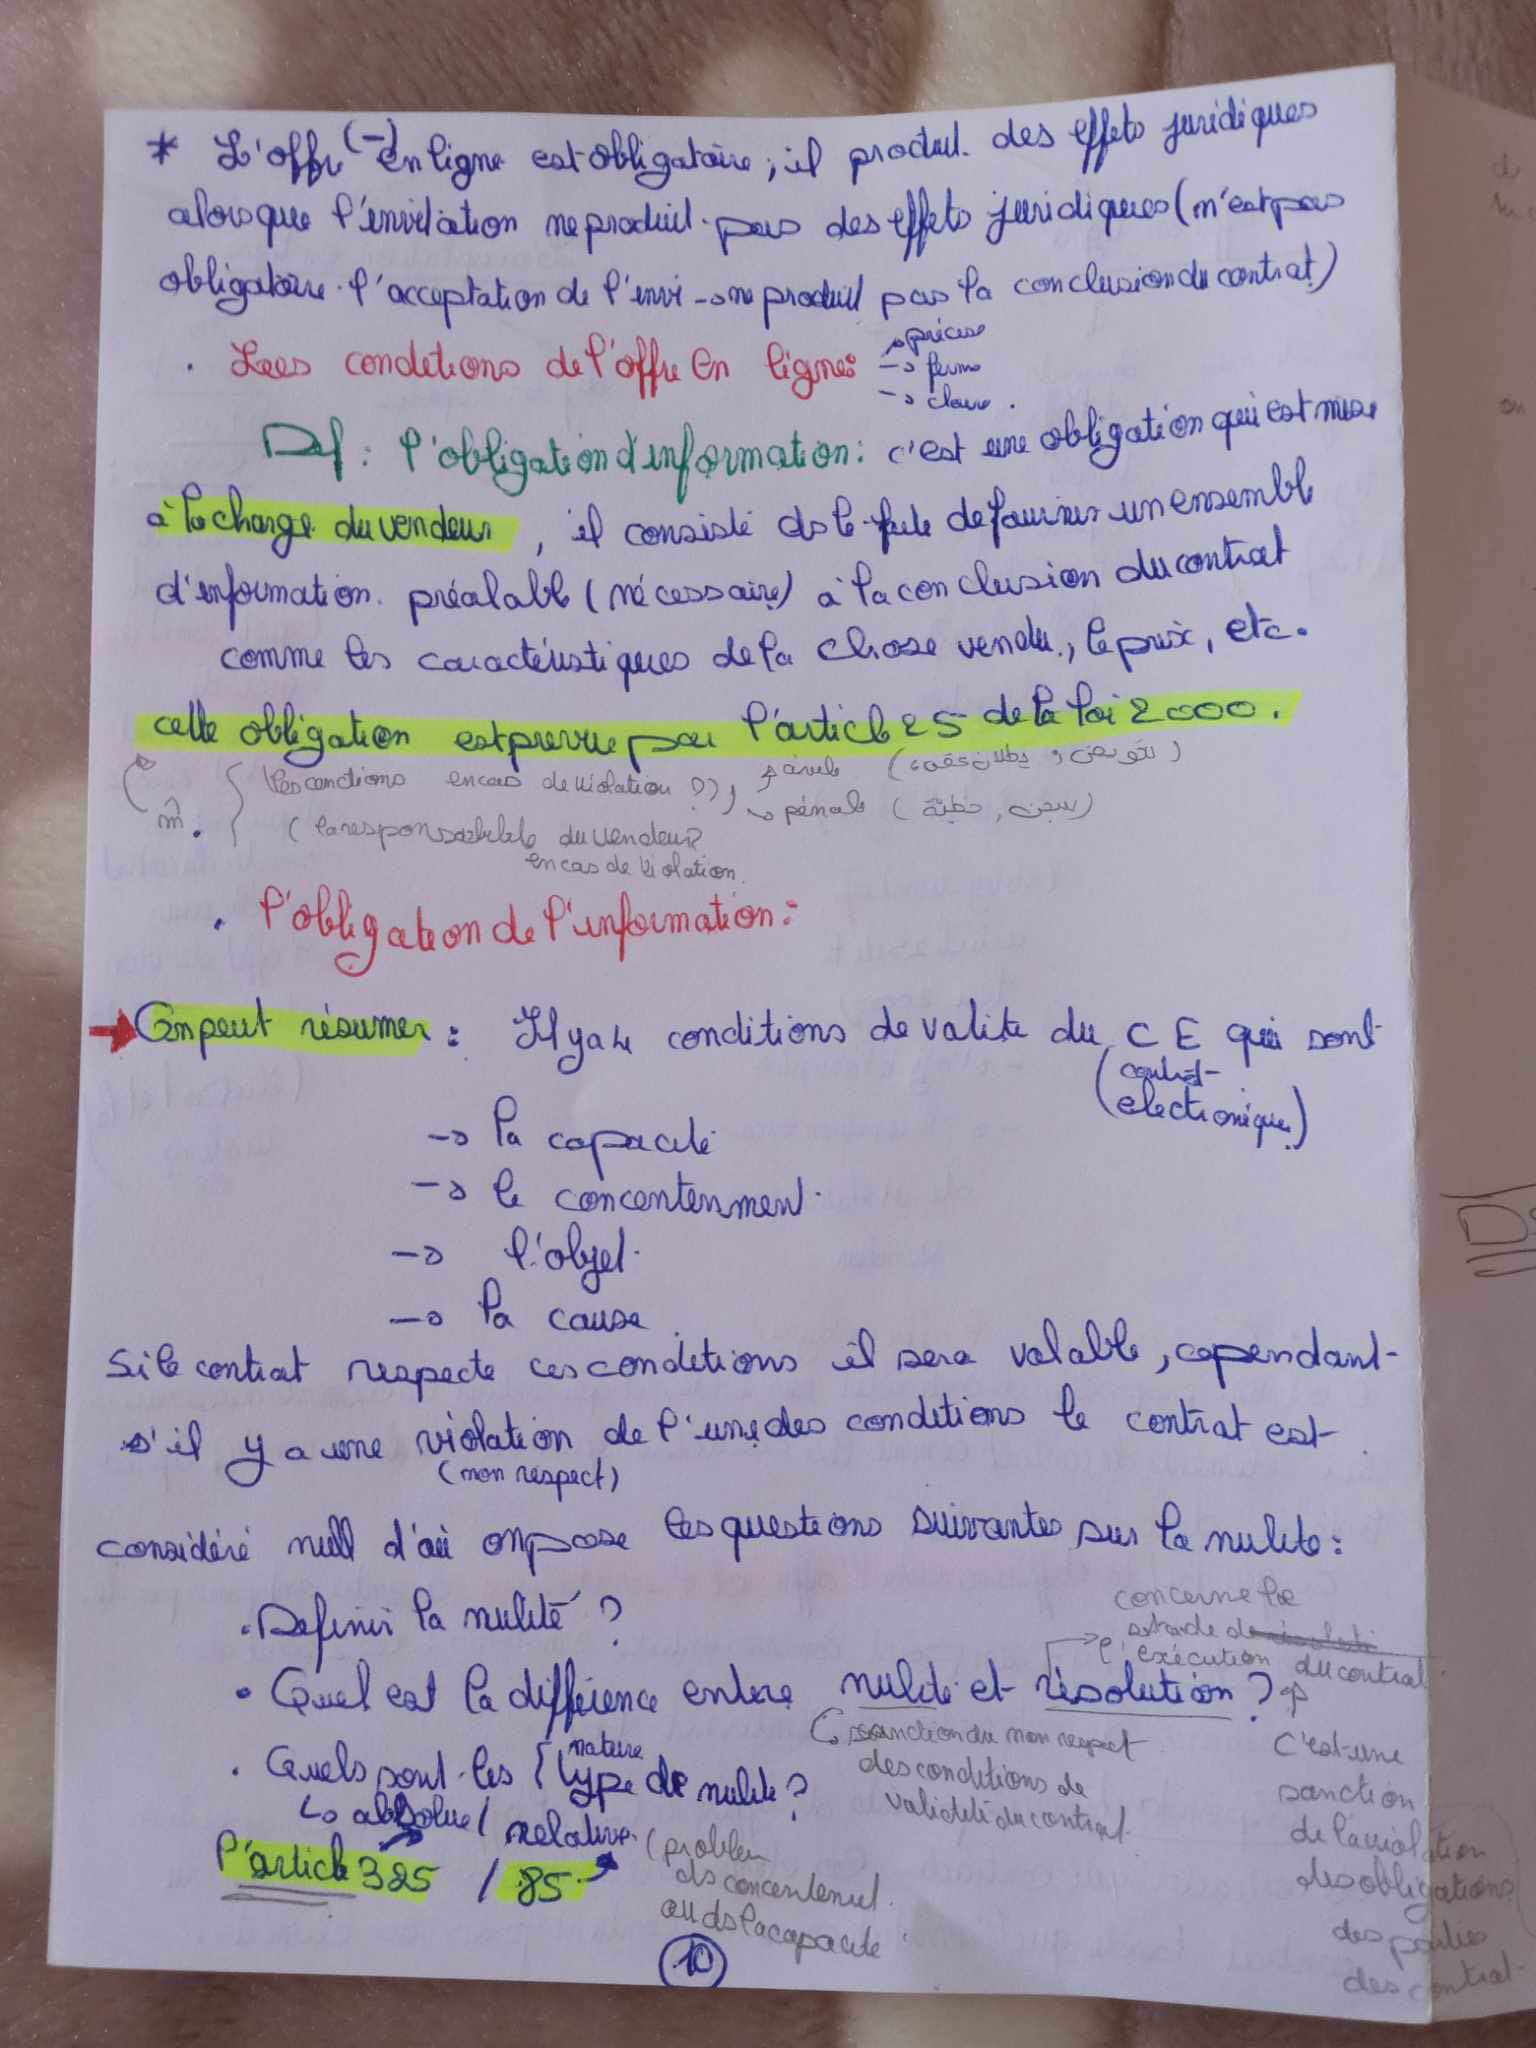 * L'offre (-) en ligne est obligatoire, il produit des effets juridiques
alors que l'invitation ne produit pas des effets juridiques (n'est pas
obligatoire. l'acceptation de l'envi → ne produit pas la conclusion du contrat)
. Lees conditions de l'offre En ligne: → précise
→ ferme
→ claire.
Def: l'obligation d'information: c'est une obligation qui est mise
à la charge du vendeur, il consiste ds le faite de fournir un ensemble
d'information. préalable (nécessaire) à la conclusion du contrat
comme les caractéristiques de la chose vendu, le prix, etc.
cette obligation est prevue par l'article 25 de la loi 2000.
les sanctions en cas de violation ??, → civile (تعويض و بطلان عقد)
→ pénale (سجن, خطية)
(la responsabilité du vendeur?
en cas de violation.
. l'obligation de l'information:
→ On peut résumer: Il ya 4 conditions de valité du CE qui sont
(contrat
electronique)
→ la capacité
→ le concentenment.
→ l'objet.
→ la cause.
Si le contrat respecte ces conditions il sera valable, cependant
s'il y a une violation de l'une des conditions le contrat est
(non respect)
considéré null d'où on pose les questions suivantes sur la nulité:
. Définir la nulité ?
concerne la
stade de
l'exécution du contrat
. Quel est la différence entre nulité et résolution ?
sanction du non respect
des conditions de
validité du contrat.
c'est une
sanction
de la violation
des obligations
des parties
des contrat.
. Quels sont les type de nulité ?
nature
↳ absolue / relative. (problem
ds concentement.
ou ds la capacité
l'article 325 / 85
10